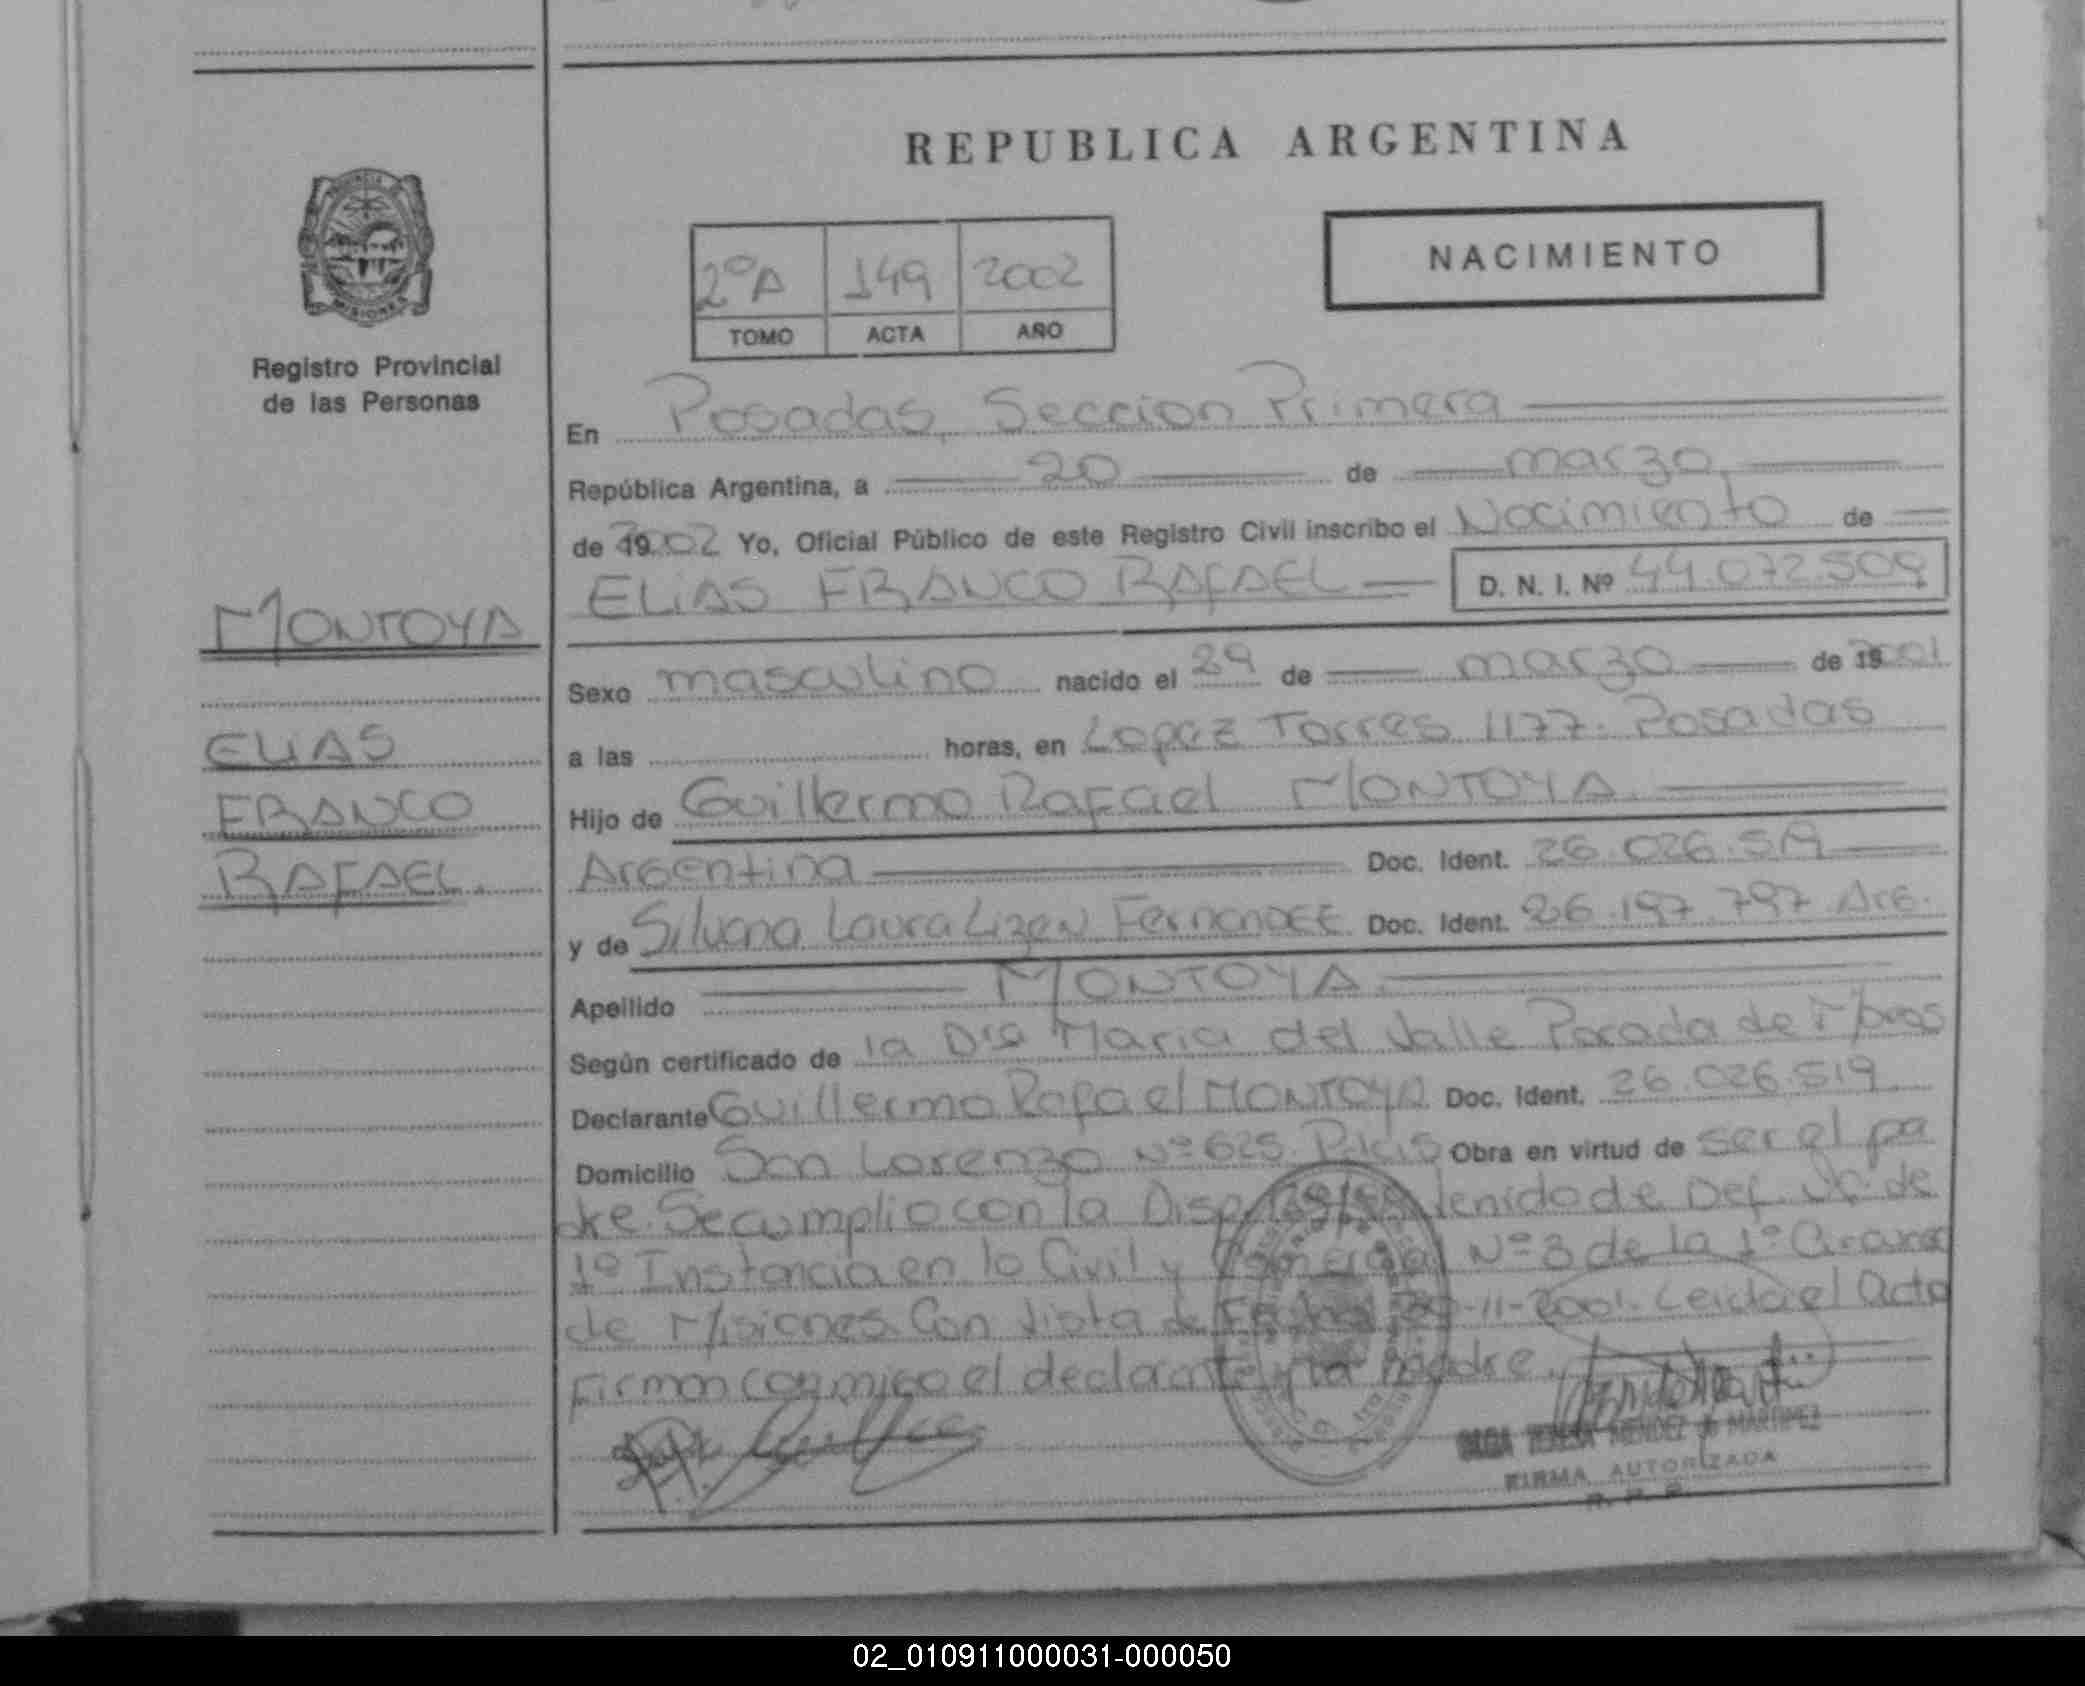 REPUBLICA ARGENTINA
NACIMIENTO
2º A 149 2002
TOMO ACTA AÑO
PROVINCIA DE MISIONES
Registro Provincial
de las Personas
MONTOYA
ELIAS
FRANCO
RAFAEL
En Posadas, Seccion Primera
República Argentina, a 20 de marzo
de 2002 Yo, Oficial Público de este Registro Civil inscribo el Nacimiento de
ELIAS FRANCO RAFAEL D. N. I. Nº 44.072.509
Sexo masculino nacido el 29 de marzo de 2001
a las horas, en Lopez Torres 1177. Posadas
Hijo de Guillermo Rafael MONTOYA
Argentina Doc. Ident. 26.026.519
y de Silvana Laura Lizen Fernandez Doc. Ident. 26.197.797 Arg.
Apellido MONTOYA
Según certificado de la Dra Maria del Valle Posada de
Declarante Guillermo Rafael MONTOYA Doc. Ident. 26.026.519
Domicilio San Lorenzo Nº 625. Obra en virtud de ser el pa
dre. Se cumplio con la Disp. de Def. de
1º Instancia en lo Civil y Comercial Nº 3 de la 1º
de Misiones Con Vista de Fecha -11-2001. Leida el Acta
Firman conmigo el declarante y la Madre.
OLGA TERESA MENDEZ de MARTINEZ
FIRMA AUTORIZADA
R. P. P.
02_010911000031-000050